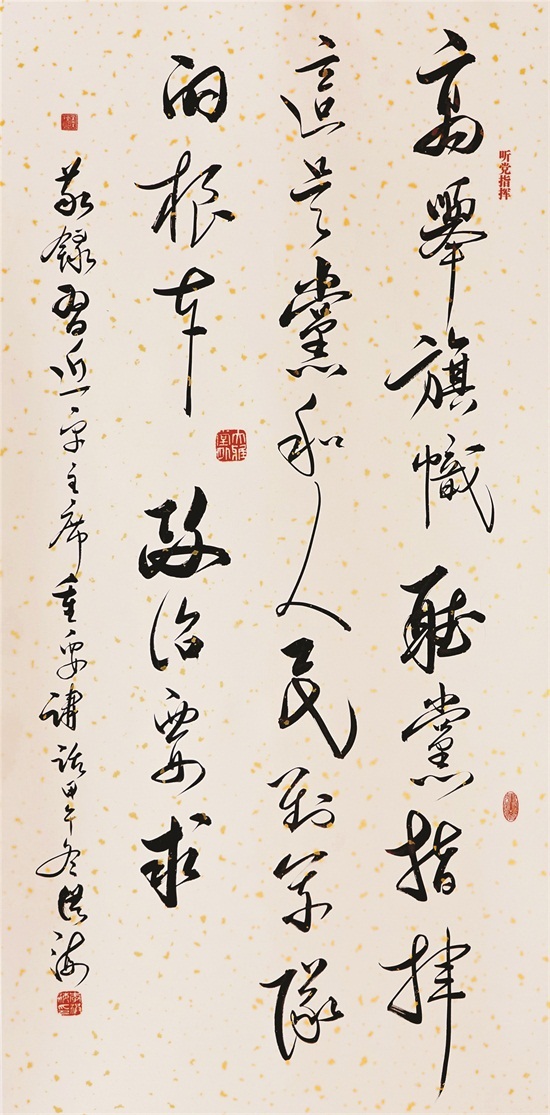 听党指挥
高舉旗幟聽黨指揮
這是黨和人民對軍隊
的根本政治要求
敬錄習近平主席重要講話甲午冬洪海